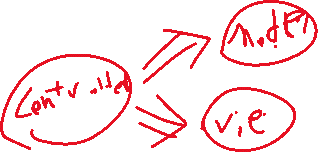 Controller
model
vie